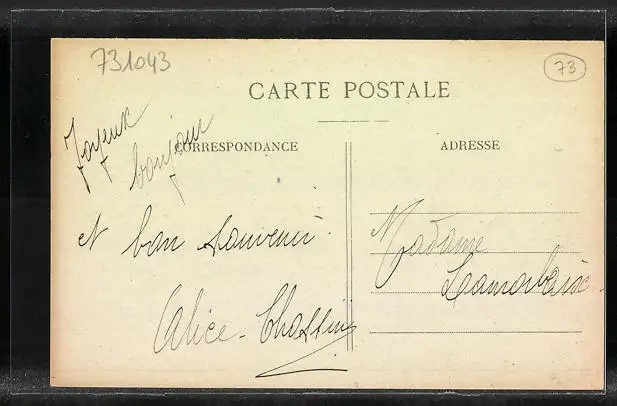 731043
73
CARTE POSTALE
CORRESPONDANCE
ADRESSE
Joyeux
bonjour
et bon souvenir.
Alice
Madame